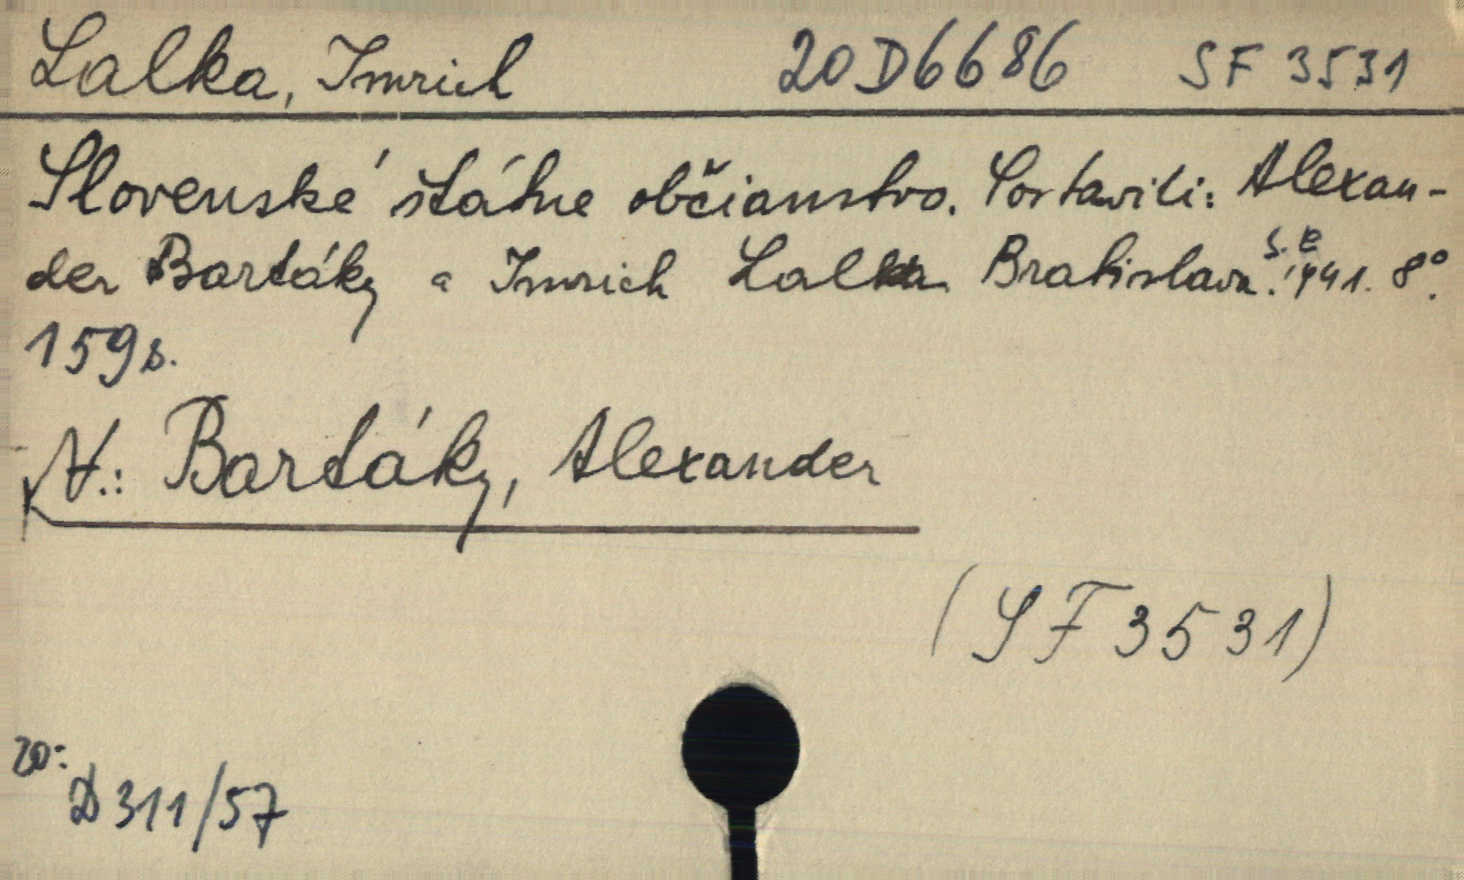 Lalka, Imrich 20D6686 SF 3531
Slovenské štátne občianstvo. Sostavili: Alexan-
der Bartáky a Imrich Lalka. Bratislava. s. e. 1941. 8°.
159 s.
V.: Bartáky, Alexander
(SF 3531)
20:
D 311/57